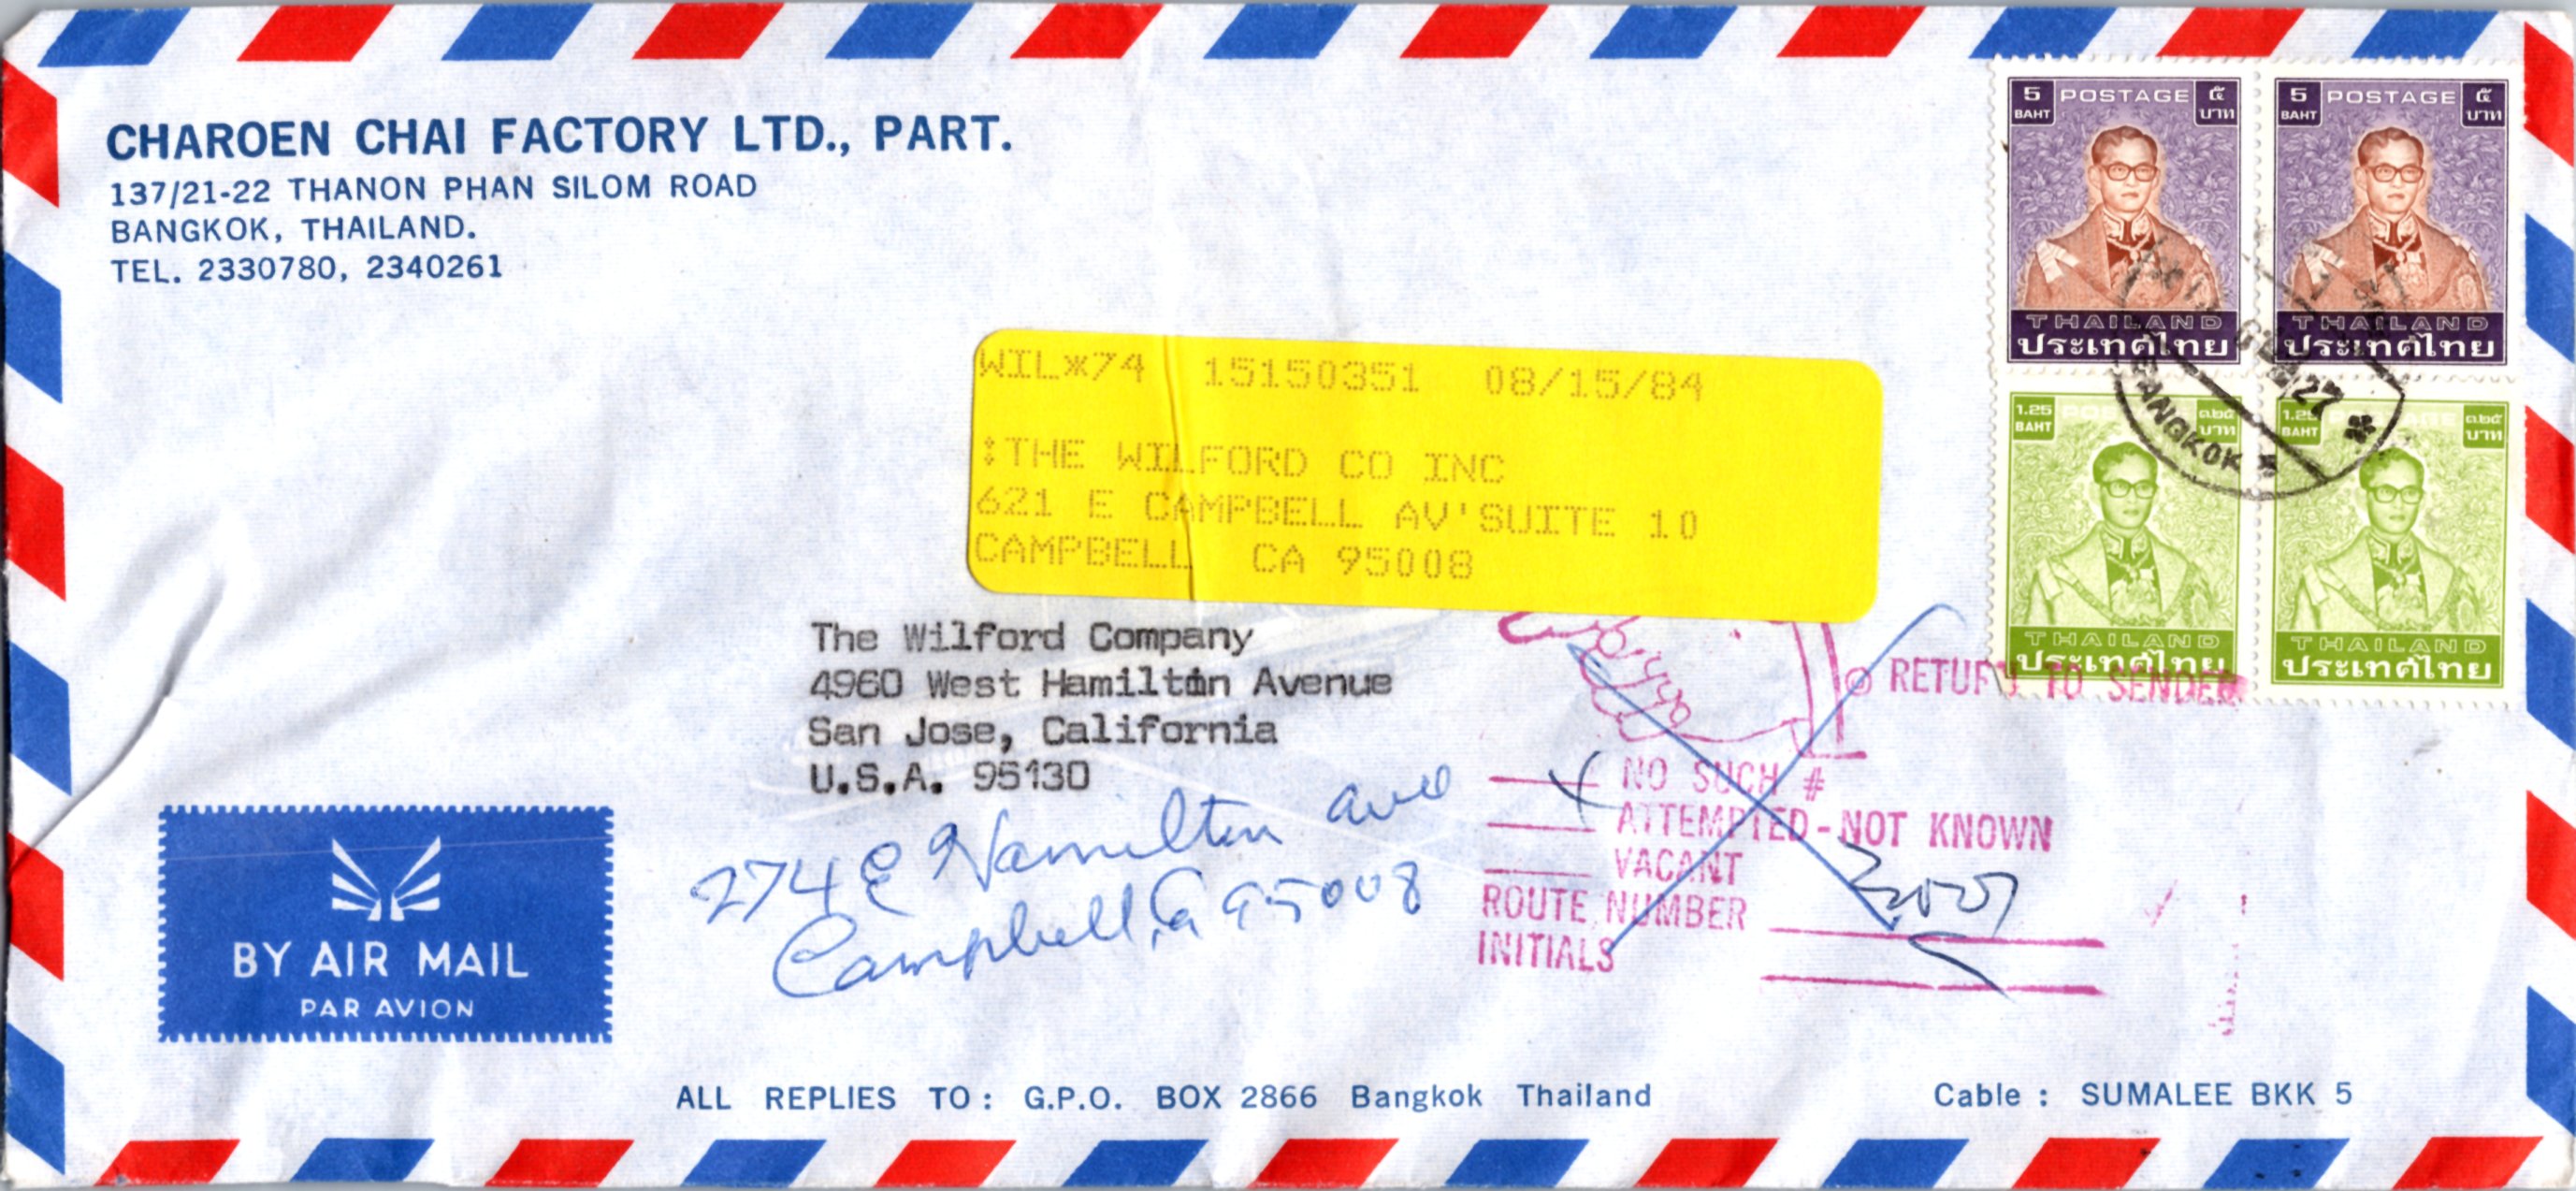 CHAROEN CHAI FACTORY LTD., PART.
137/21-22 THANON PHAN SILOM ROAD
BANGKOK, THAILAND.
TEL. 2330780, 2340261
5 POSTAGE ๕
BAHT บาท
THAILAND
ประเทศไทย
5 POSTAGE ๕
BAHT บาท
THAILAND
ประเทศไทย
1.25 POSTAGE ๑.๒๕
BAHT บาท
THAILAND
ประเทศไทย
1.25 POSTAGE ๑.๒๕
BAHT บาท
THAILAND
ประเทศไทย
BANGKOK
WIL*74 15150351 08/15/84
:THE WILFORD CO INC
621 E CAMPBELL AV'SUITE 10
CAMPBELL CA 95008
The Wilford Company
4960 West Hamilton Avenue
San Jose, California
U.S.A. 95130
274 E Hamilton ave
Campbell, Ca 95008
RETURN TO SENDER
NO SUCH #
ATTEMPTED-NOT KNOWN
VACANT
ROUTE NUMBER
INITIALS
BY AIR MAIL
PAR AVION
ALL REPLIES TO : G.P.O. BOX 2866 Bangkok Thailand
Cable : SUMALEE BKK 5